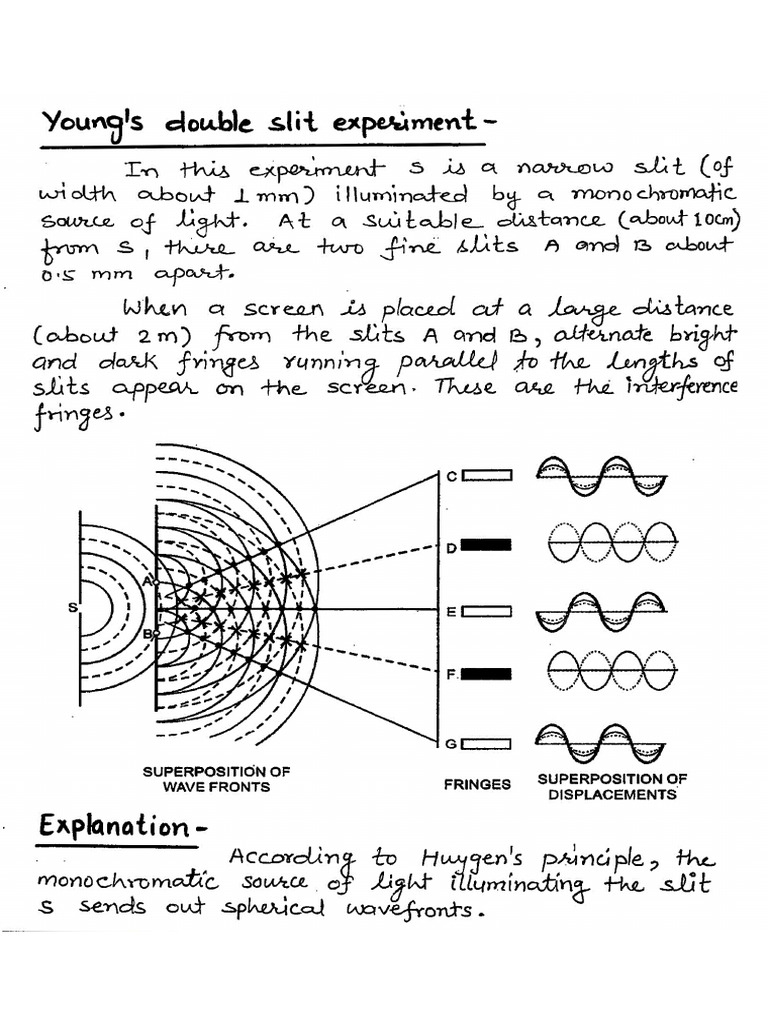 Young's double slit experiment-
In this experiment S is a narrow slit (of
width about 1 mm) illuminated by a monochromatic
source of light. At a suitable distance (about 10cm)
from S, there are two fine slits A and B about
0.5 mm apart.
When a screen is placed at a large distance
(about 2m) from the slits A and B, alternate bright
and dark fringes running parallel to the lengths of
slits appear on the screen. These are the interference
fringes.
C
D
A
S
E
B
F
G
SUPERPOSITION OF
WAVE FRONTS
FRINGES
SUPERPOSITION OF
DISPLACEMENTS
Explanation-
According to Huygen's principle, the
monochromatic source of light illuminating the slit
S sends out spherical wavefronts.